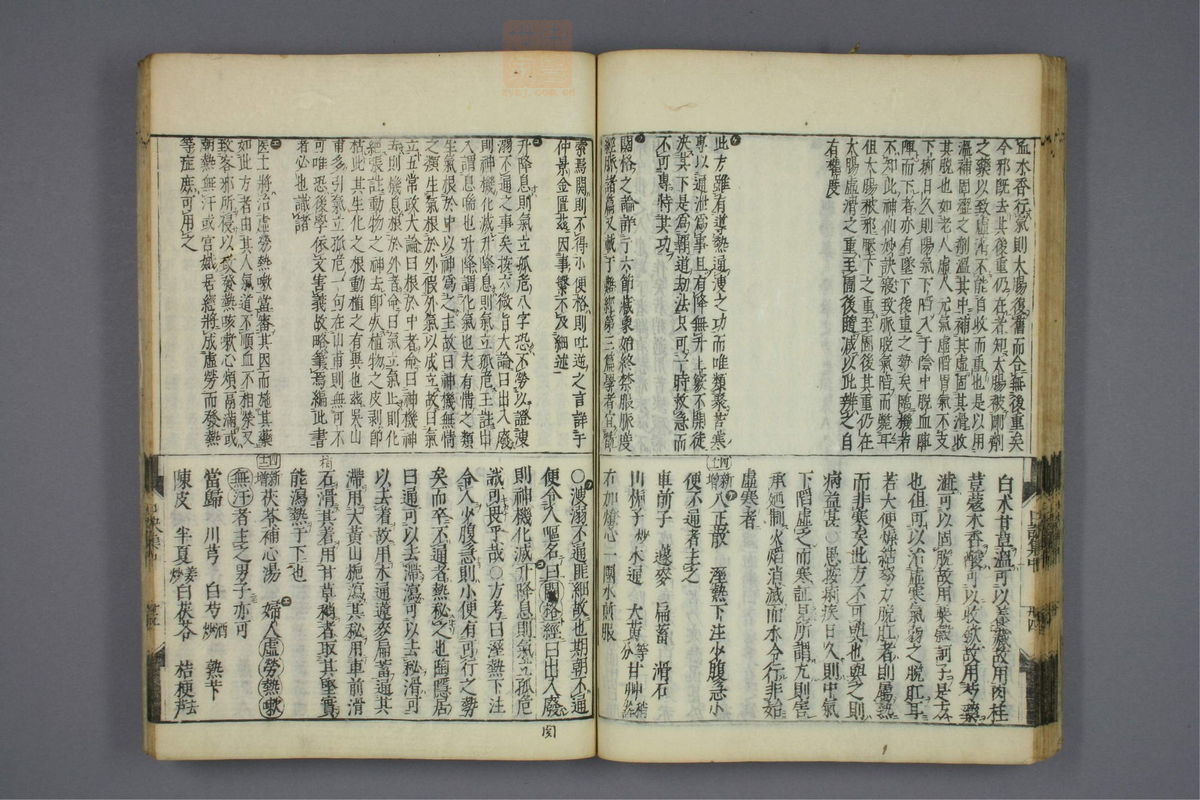 白朮甘草溫可以養藏故用肉桂
荳蔻木香酸可以收歛故用芍藥
澁可以固脫故用粟殼訶子是方
也徂可以治虛寒氣弱之脫肛耳
若大便燥結努力脫肛者則屬熱
而非寒矣此方不可
病益甚〇思按痢疾日久則中氣
下陷虛之而寒証見所謂亢則害
承廼制火熖消滅而水令行非始
虛寒者
八正散 溼熱下注少腹急小
便不通者主之
車前子 瞿麥 扁蓄 滑石
山梔子炒 木通 大黃 甘艸
右加燈心一團水煎服
血木香行氣則大腸復舊而
今邪既去其後重仍在者知大腸被剛劑
之藥以致虛滑不能自收而重也是以用
其脫也如老人虛人元氣虛陷胃氣不支
下痢日久則陽氣下陷入于陰中脫血
但大腸被邪壓下之重至圊後其重仍在
大腸虛滑之重至圊後隨减以此辨之自
有輕度
此方雖有導熱通溲之功而唯類聚苦寒
專以通泄爲事且有降無升
決其下是爲覇道劫法只可一時救急而
不可專恃其功
關格之論詳于六節藏象始終禁服脈度
〇溲溺不通匪細故也期朝不通
便令人嘔名曰關格經曰出入廢
則神機化滅升降息則氣立孤危
誠可畏乎哉〇方考曰溼熱下注
令人少腹急則小便有可行之勢
矣而卒不通者熱秘之也陶隱居
曰通可以去滯瀉可以去秘滑可
以去着故用木通瞿麥扁蓄通其
滯用大黃山梔瀉其秘用車前滑
石滑其着用甘草稍者取其堅實
能瀉熱于下也
茯苓補心湯 婦人虛勞熱嗽
無汗者主之男子亦可
當歸 川芎 白芍酒炒 熟苄
陳皮 半夏 白茯苓 桔梗
索爲關則不得小便格則吐逆之言詳于
仲景金匱茲因事繁不及細述
升降息則氣立孤危八字恐不
溺不通之事矣按六微旨大論曰出入廢
則神機化滅升降息則氣立孤危王註出
入謂息喘也升降謂化氣也夫有情之類
生氣根於中以神爲之主故曰神機無情
之類生氣根於外假外氣以成立故曰氣
立五常政大論曰根於中者命曰神機神
去則機息根於外者命曰氣立氣止則化
絕張註動物之神去卽死植物之皮剥卽
枯此其生化之根動植之有異也
甫多引氣立孤危一句在山甫則無可不
可唯恐後學依文害義故略筆焉編此書
者必也識諸
醫士將治虛勞熱嗽當審其因而施其藥
如此方者由其人氣道不順血不相榮又
致客邪所侵以致發熱咳嗽心煩鬲滿或
朝熱無汗或宫娥居經將成虛勞而發熱
等症庶可用之